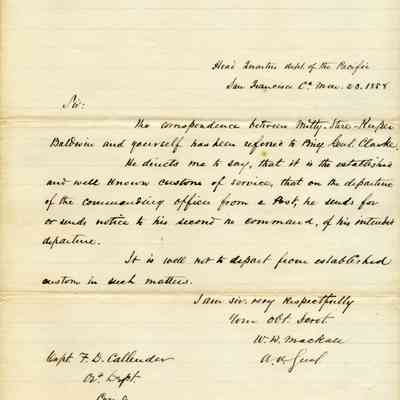 Head Quarters dept. of the Pacific
San Francisco Ca Mar. 23. 1858
Sir:
The correspondence between Milty. Store Keeper
Baldwin and yourself has been referred to Brig Genl. Clarke.
He directs me to say, that it is the established
and well known custom of service, that on the departure
of the commanding officer from a Post, he sends for
or sends notice to his second in command, of his intended
departure.
It is well not to depart from established
custom in such matters.
I am sir, very respectfully
Your Obt. Servt.
W. W. Mackall
A. A. Genl
Capt. F. D. Callender
Dept.